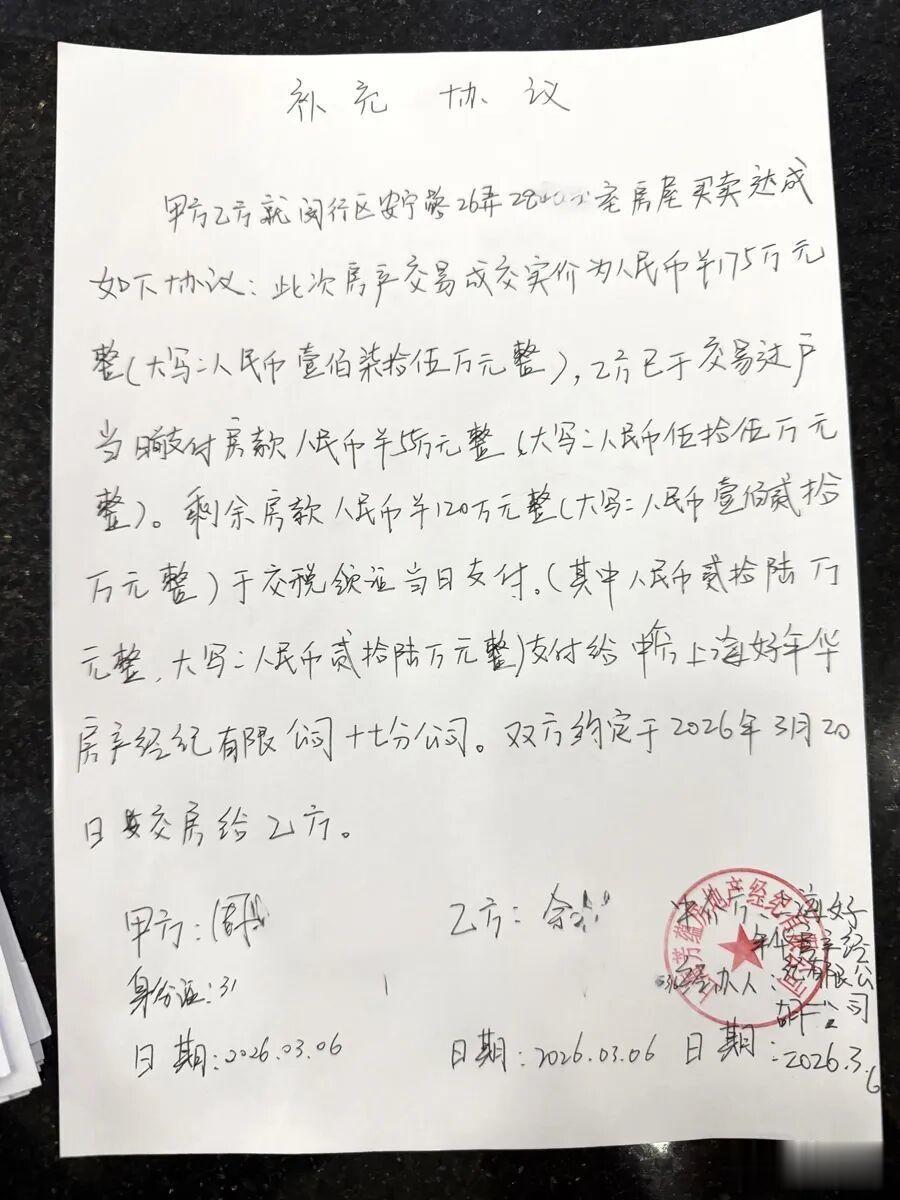 补充 协议
甲方乙方就闵行区安宁路26弄28 室房屋买卖达成
如下协议：此次房产交易成交实价为人民币¥175万元
整（大写：人民币壹佰柒拾伍万元整），乙方已于交易过户
当日前支付房款人民币¥55万元整（大写：人民币伍拾伍万元
整）。剩余房款人民币¥120万元整（大写：人民币壹佰贰拾
万元整）于交税领证当日支付。（其中人民币贰拾陆万
元整，大写：人民币贰拾陆万元整）支付给中介方上海好年华
房产经纪有限公司十七分公司。双方约定于2026年3月20
日交房给乙方。
甲方：周 乙方：余 中介方：上海好
年华房产经
身份证：31 经办人：纪有限公
胡 公司
日期：2026.03.06 日期：2026.03.06 日期：2026.3.6
芳蕴房地产经纪有限公司